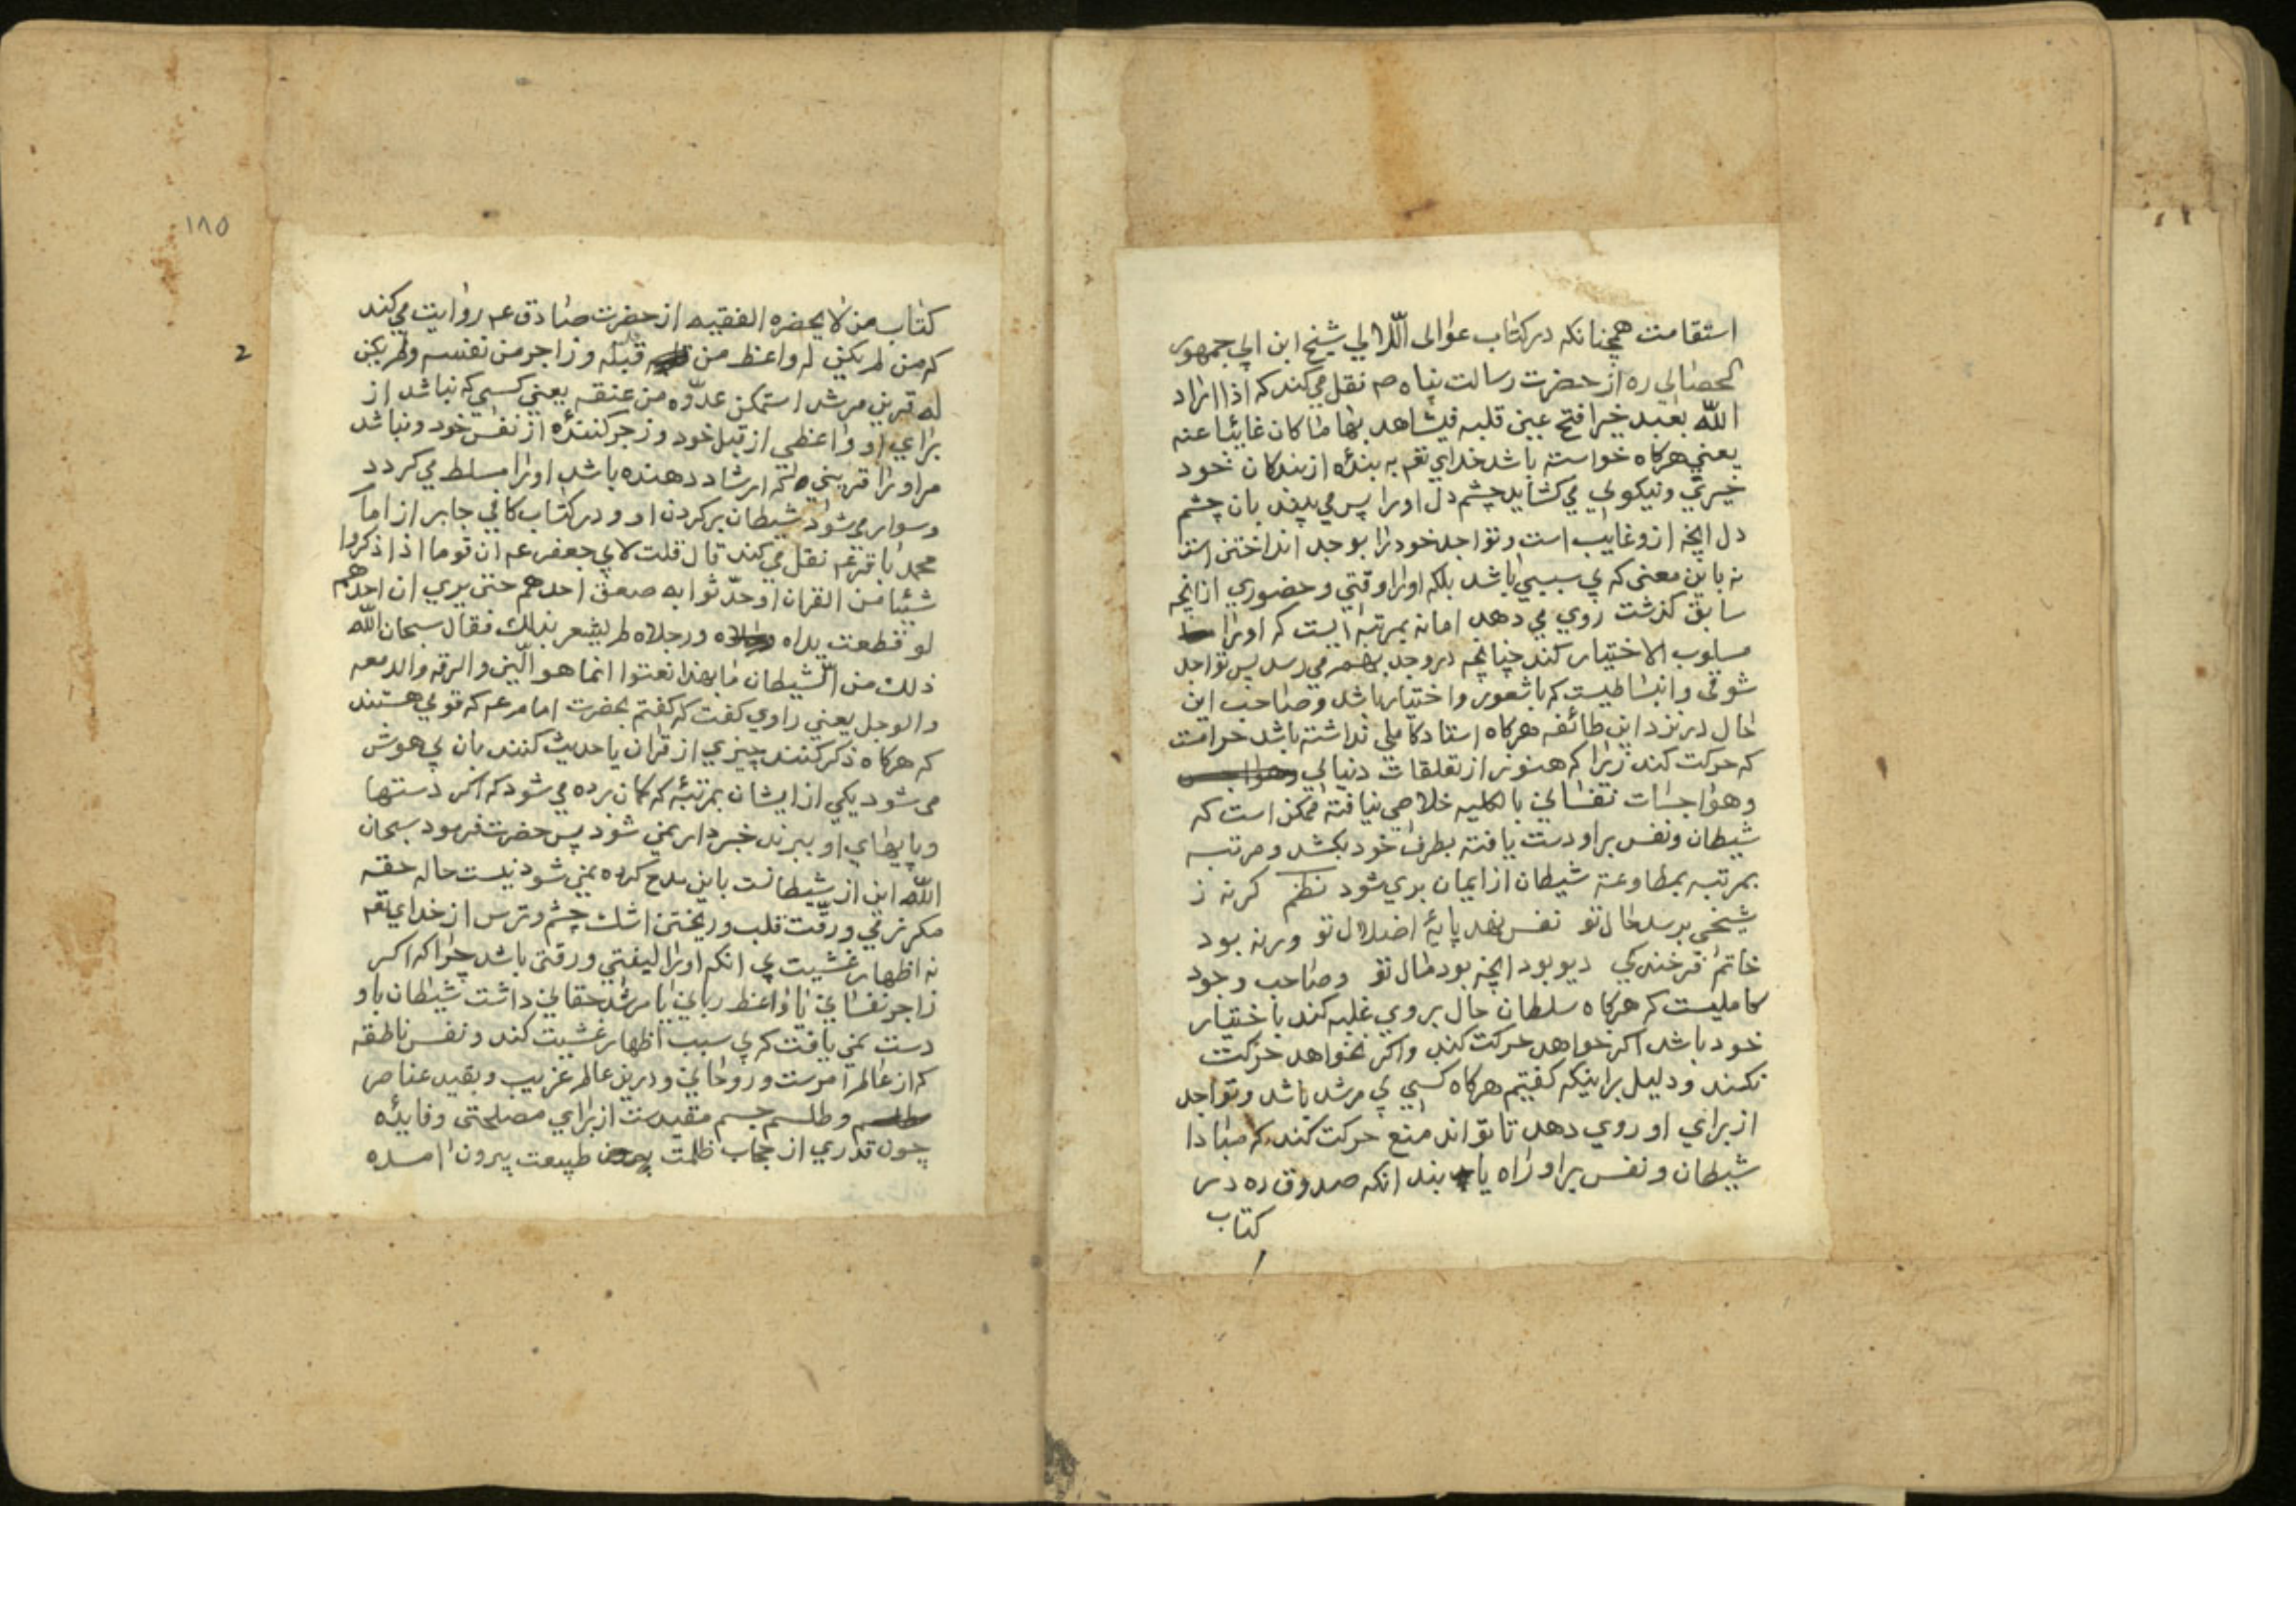 استقامت همچنانکه در کتاب عوالی اللّالی شیخ ابن ابی جمهور
لحصائی ره از حضرت رسالت پناه صم نقل می کند که اذا اراد
اللّه بعبد خیرا فتح عین قلبه فیشاهد بها ما کان غائبا عنه
یعنی هرکاه خواسته باشد خدای تعم به بندهٔ از بندکان خود
خیری و نیکوئی می کشاید چشم دل او را پس می بیند بان چشم
دل انچه از و غایب است و تواجد خود را بوجد انداختن است
نه باین معنی که بی سببی باشد بلکه او را وقتی و حضوری از انچه
سابق کذشت روی می دهد اما نه بمرتبه ایست که او را
مسلوب الاختیار کند چنانچه در وجد بهم می رسد پس تواجد
شوقی و انبساطیست که با شعور و اختیار باشد و صاحب این
حال در نزد این طائفه هرکاه استاد کاملی نداشته باشد حرامست
که حرکت کند زیرا که هنوز از تعلقات دنیائی
و هواجسات نفسانی بالکلیه خلاصی نیافته ممکن است که
شیطان و نفس بر او دست یافته بطرف خود بکشد و مرتبه
بمرتبه بمطاوعة شیطان از ایمان بری شود نظم کر نه ز
شیخی برسد حال تو نفس نهد پایهٔ اضلال تو ور نه بود
خاتم فرخندکی دیو بود انچه بود مال تو و صاحب وجود
کاملیست که هرکاه سلطان حال بروی غلبه کند با ختیار
خود باشد اکر خواهد حرکت کند و اکر نخواهد حرکت
نکند و دلیل بر اینکه کفتیم هرکاه کسی بی مرشد باشد و تواجد
از برای او روی دهد تا تواند منع حرکت کند که مبادا
شیطان و نفس بر او راه یا بند انکه صدوق ره در
کتاب
١٨٥
2
کتاب من لا یحضره الفقیه از حضرت صادق عم روایت می کند
که من لم یکن له واعظ من قبله و زاجر من نفسه و لم یکن
له قرین مرشد استمکن عدوّه من عنقه یعنی کسی که نباشد از
برای او واعظی از قبل خود و زجر کنندهٔ از نفس خود و نباشد
مر او را قرینی که ارشاد دهنده باشد او را مسلط می کردد
و سوار می شود شیطان بر کردن او و در کتاب کافی جابر از اما
محمد باقر عم نقل می کند قال قلت لابی جعفر عم ان قوما اذا ذکروا
شیئا من القران او حدّثوا به صعق احدهم حتی یری ان احدهم
لو قطعت یداه و رجلاه لم یشعر بذلك فقال سبحان اللّه
ذلك من الشیطان ما بهذا نعتوا انما هو اللّین و الرقه و الدمعه
و الوجل یعنی راوی کفت که کفتم بحضرت امام عم که قومی هستند
که هرکاه ذکر کنند چیزی از قران یا حدیث کنند بان بی هوش
می شود یکی از ایشان بمرتبهٔ که کمان برده می شود که اکر دستها
و پایهای او ببرند خبردار نمی شود پس حضرت فرمود سبحان
اللّه این از شیطانست باین مدح کرده نمی شود نیست حاله حقه
مکر نرمی و رقّت قلب و ریختن اشك چشم و ترس از خدای تعم
نه اظهار غشیت بی انکه او را لیفتی و رقتی باشد چرا که اکر
زاجر نفسانی یا واعظ ربانی یا مرشد حقانی داشت شیطان باو
دست نمی یافت که بی سبب اظهار غشیت کند و نفس ناطقه
که از عالم امرست و روحانی و درین عالم غریب و بقید عناصر
و طلسم جسم مقیدست از برای مصلحتی و فایدهٔ
چون قدری از حجاب ظلمت طبیعت بیرون امده